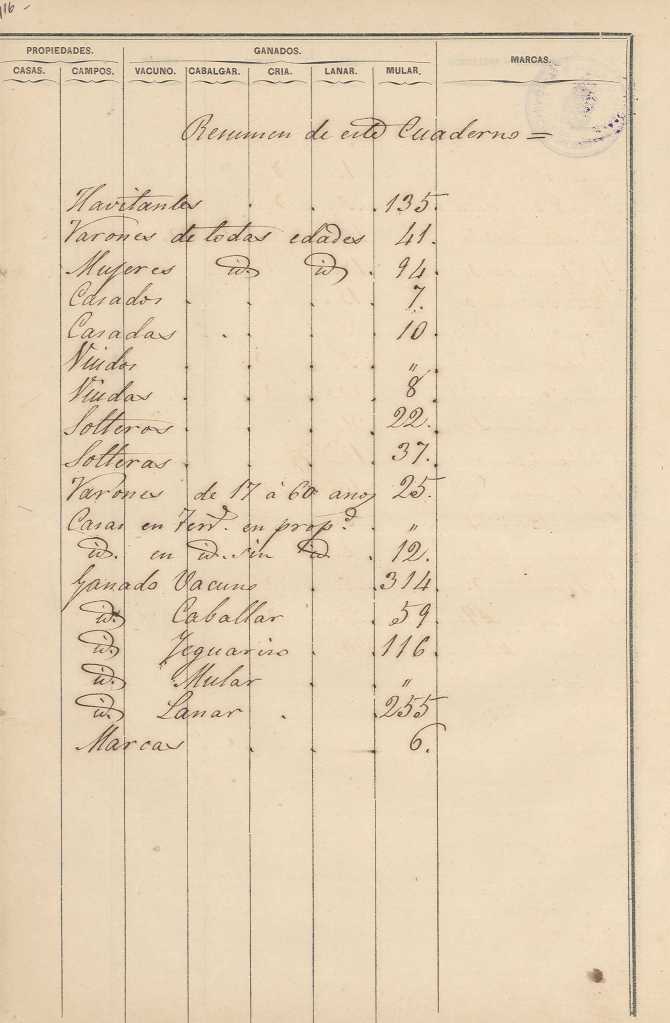 116 -
PROPIEDADES. GANADOS. MARCAS.
CASAS. CAMPOS. VACUNO. CABALGAR. CRIA. LANAR. MULAR.
Resumen de este Cuaderno =
Havitantes . . . 135.
Varones de todas edades 41.
Mujeres id. id . 94.
Casados . . . . 7.
Casadas . . . . 10.
Viudos . . . . "
Viudas . . . . 8.
Solteros . . . . 22.
Solteras . . . . 37.
Varones de 17 à 60 años 25.
Casas en Terrd. en propd. . "
id. en id. sin id. . 12.
Ganado Vacuno . . 314.
id. Caballar . . 59.
id. Yeguariso . . 116.
id. Mular . . "
id. Lanar . . 255
Marcas . . . 6.